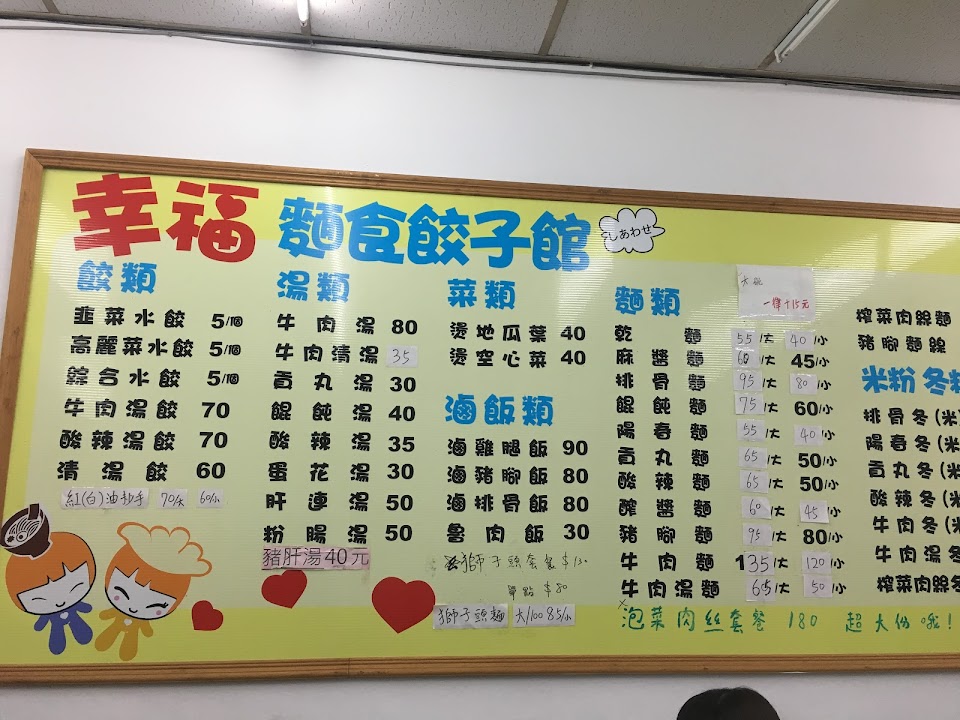 幸福 麵食餃子館 しあわせ
餃類
韭菜水餃 5/個
高麗菜水餃 5/個
綜合水餃 5/個
牛肉湯餃 70
酸辣湯餃 70
清湯餃 60
紅(白)油抄手 70/大 60/小
湯類
牛肉湯 80
牛肉清湯 35
貢丸湯 30
餛飩湯 40
酸辣湯 35
蛋花湯 30
肝連湯 50
粉腸湯 50
豬肝湯40元
菜類
燙地瓜葉 40
燙空心菜 40
滷飯類
滷雞腿飯 90
滷豬腳飯 80
滷排骨飯 80
魯肉飯 30
獅子頭套餐 $130
單點 $80
獅子頭麵 大/100 85/小
麵類
一律+15元
乾麵 55/大 40/小
麻醬麵 60/大 45/小
排骨麵 95/大 80/小
餛飩麵 75/大 60/小
陽春麵 55/大 40/小
貢丸麵 65/大 50/小
酸辣麵 65/大 50/小
酢醬麵 60/大 45/小
豬腳麵 95/大 80/小
牛肉麵 135/大 120/小
牛肉湯麵 65/大 50/小
泡菜肉丝套餐 180 超大份哦!
榨菜肉絲麵
豬腳麵線
米粉 冬粉
排骨冬(米
陽春冬(米
貢丸冬(米
酸辣冬(米
牛肉冬(米
牛肉湯冬
榨菜肉絲冬